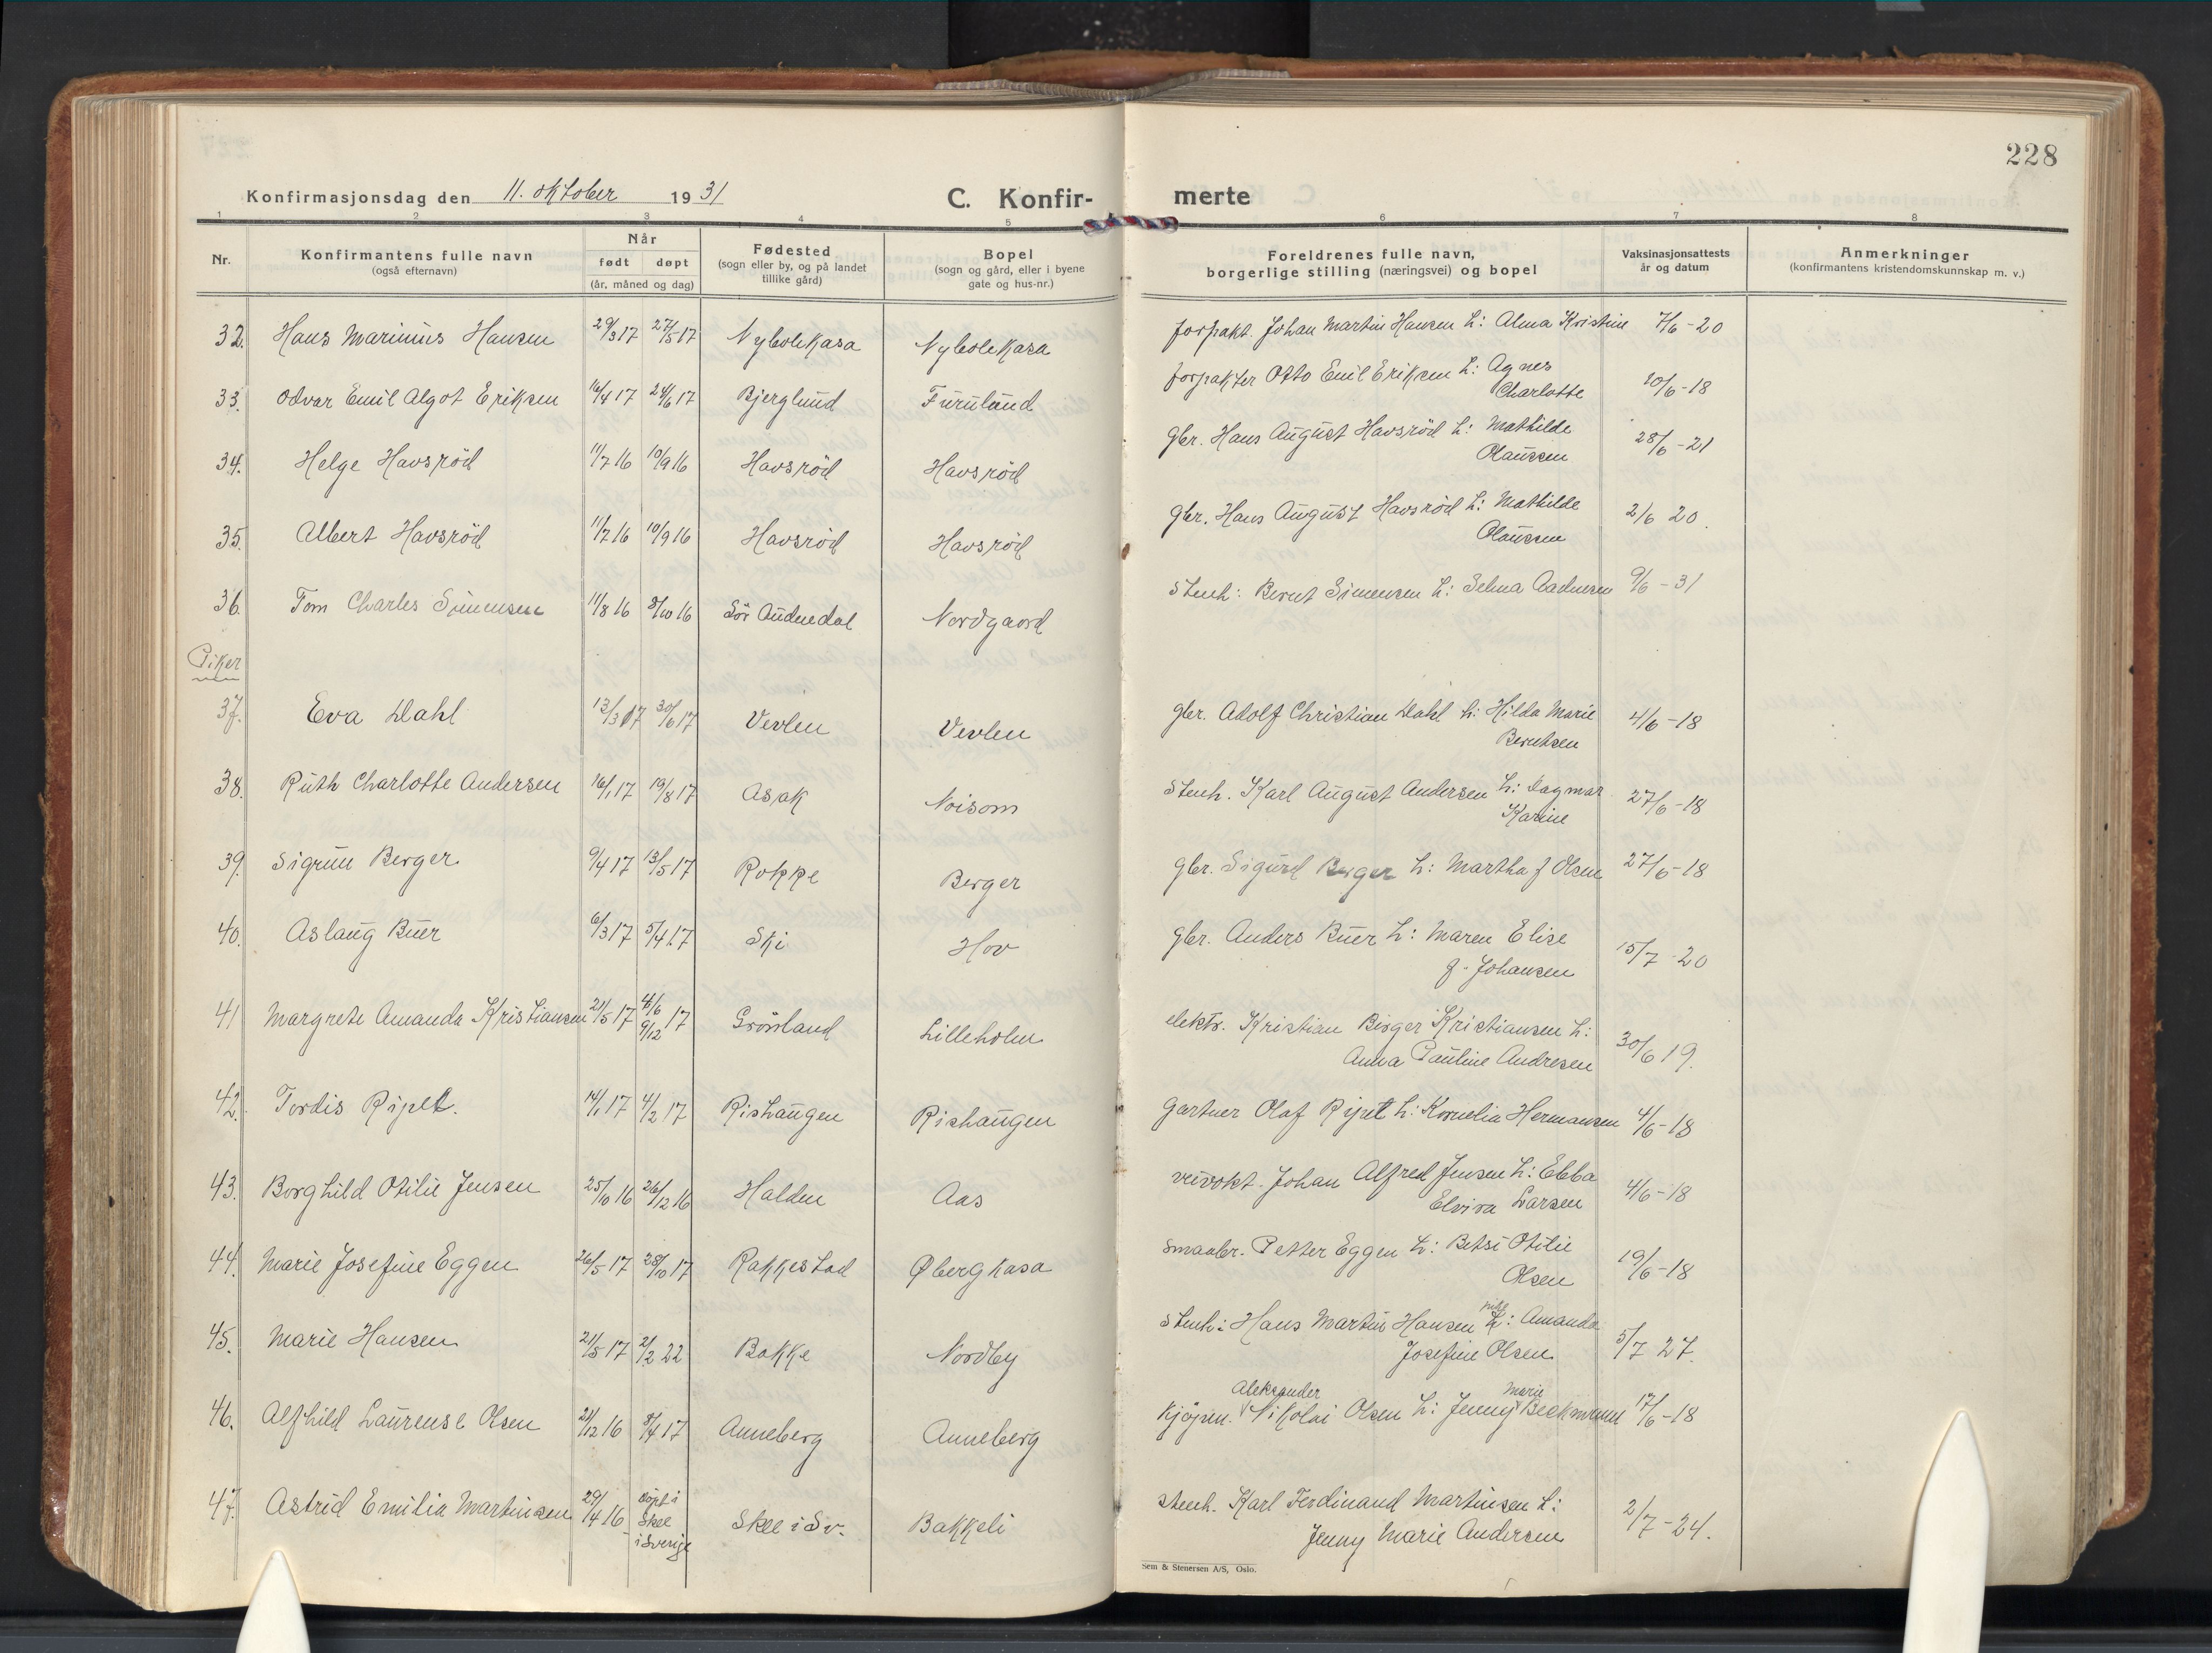 228
Konfirmasjonsdag den 11. oktober 1931
C. Konfir-
merte
1 2 3 4 5 6 7 8
Nr.
Konfirmantens fulle navn
(også efternavn)
Når
født døpt
(år, måned og dag)
Fødested
(sogn eller by, og på landet
tillike gård)
Bopel
(sogn og gård, eller i byene
gate og hus-nr.)
Foreldrenes fulle navn,
borgerlige stilling (næringsvei) og bopel
Vaksinasjonsattests
år og datum
Anmerkninger
(konfirmantens kristendomskunnskap m. v.)
32. Hans Marinius Hansen 29/3 17 27/5 17 Nybolekasa Nybolekasa forpakt. Johan Martin Hansen h: Alma Kristine 7/6-20
33. Odvar Emil Algot Eriksen 16/4 17 24/6 17 Bjerglund Furulund forpakter Otto Emil Eriksen h: Agnes
Charlotte 10/6-18
34. Helge Havsrød 11/7 16 10/9 16 Havsrød Havsrød gbr. Hans August Havsrød h: Mathilde
Olaussen 28/6-21
35. Albert Havsrød 11/7 16 10/9 16 Havsrød Havsrød gbr. Hans August Havsrød h: Mathilde
Olaussen 2/6 20.
36. Tom Charles Simensen 11/8 16 8/10 16 Sör Audnedal Nordgaard Stenh: Bernt Simensen h: Selma Aadnesen 9/6-31
Piker
37. Eva Dahl 13/3 17 30/6 17 Vevlen Vevlen gbr. Adolf Christian Dahl h: Hilda Marie
Berntsen 4/6-18
38. Ruth Charlotte Andersen 16/1 17 19/8 17 Asak Noisom Stenh. Karl August Andersen h: Dagmar
Karine 27/6-18
39. Sigrun Berger 9/4 17 13/5 17 Rokke Berger gbr. Sigurd Berger h: Martha f Olsen 27/6-18
40. Aslaug Buer 6/3 17 5/4 17 Ski Hov gbr. Anders Buer h: Maren Elise
f. Johansen 15/7 20
41 Margrete Amanda Kristiansen 21/5 17 4/6 9/12 17 Grønland Lilleholm elektr. Kristian Birger Kristiansen h:
Anna Pauline Andresen 30/6 19.
42. Tordis Ripelt. 14/1 17 4/2 17 Rishaugen Rishaugen Gartner Olaf Ripelt h: Kornelia Hermansen 4/6-18
43. Borghild Otilie Jensen 25/10 16 26/12 16 Halden Aas Johan Alfred Jensen h: Ebba
Elvira Larsen 4/6-18
44. Marie Josefine Eggen 26/5 17 28/10 17 Rakkestad Øbergkasa smaabr. Petter Eggen h: Betsi Otilie
Olsen 19/6-18
45. Marie Hansen 21/5 17 2/2 22 Bakke Nordby Stenh: Hans Martin Hansen h: Amanda
Josefine Olsen 5/7 27.
46. Alfhild Laurense Olsen 21/12 16 8/4 17 Anneberg Anneberg Kjøpm. Aleksander Nikolai Olsen h: Jenny Marie Beckmann 17/6-18
47. Astrid Emilia Martinsen 29/4 16 Døpt i
Skee
i Sverige Skee i Sv. Bakkeli stenh. Karl Ferdinand Martinsen h:
Jenny Marie Andersen 2/7-24.
Sem & Stenersen A/S, Oslo.